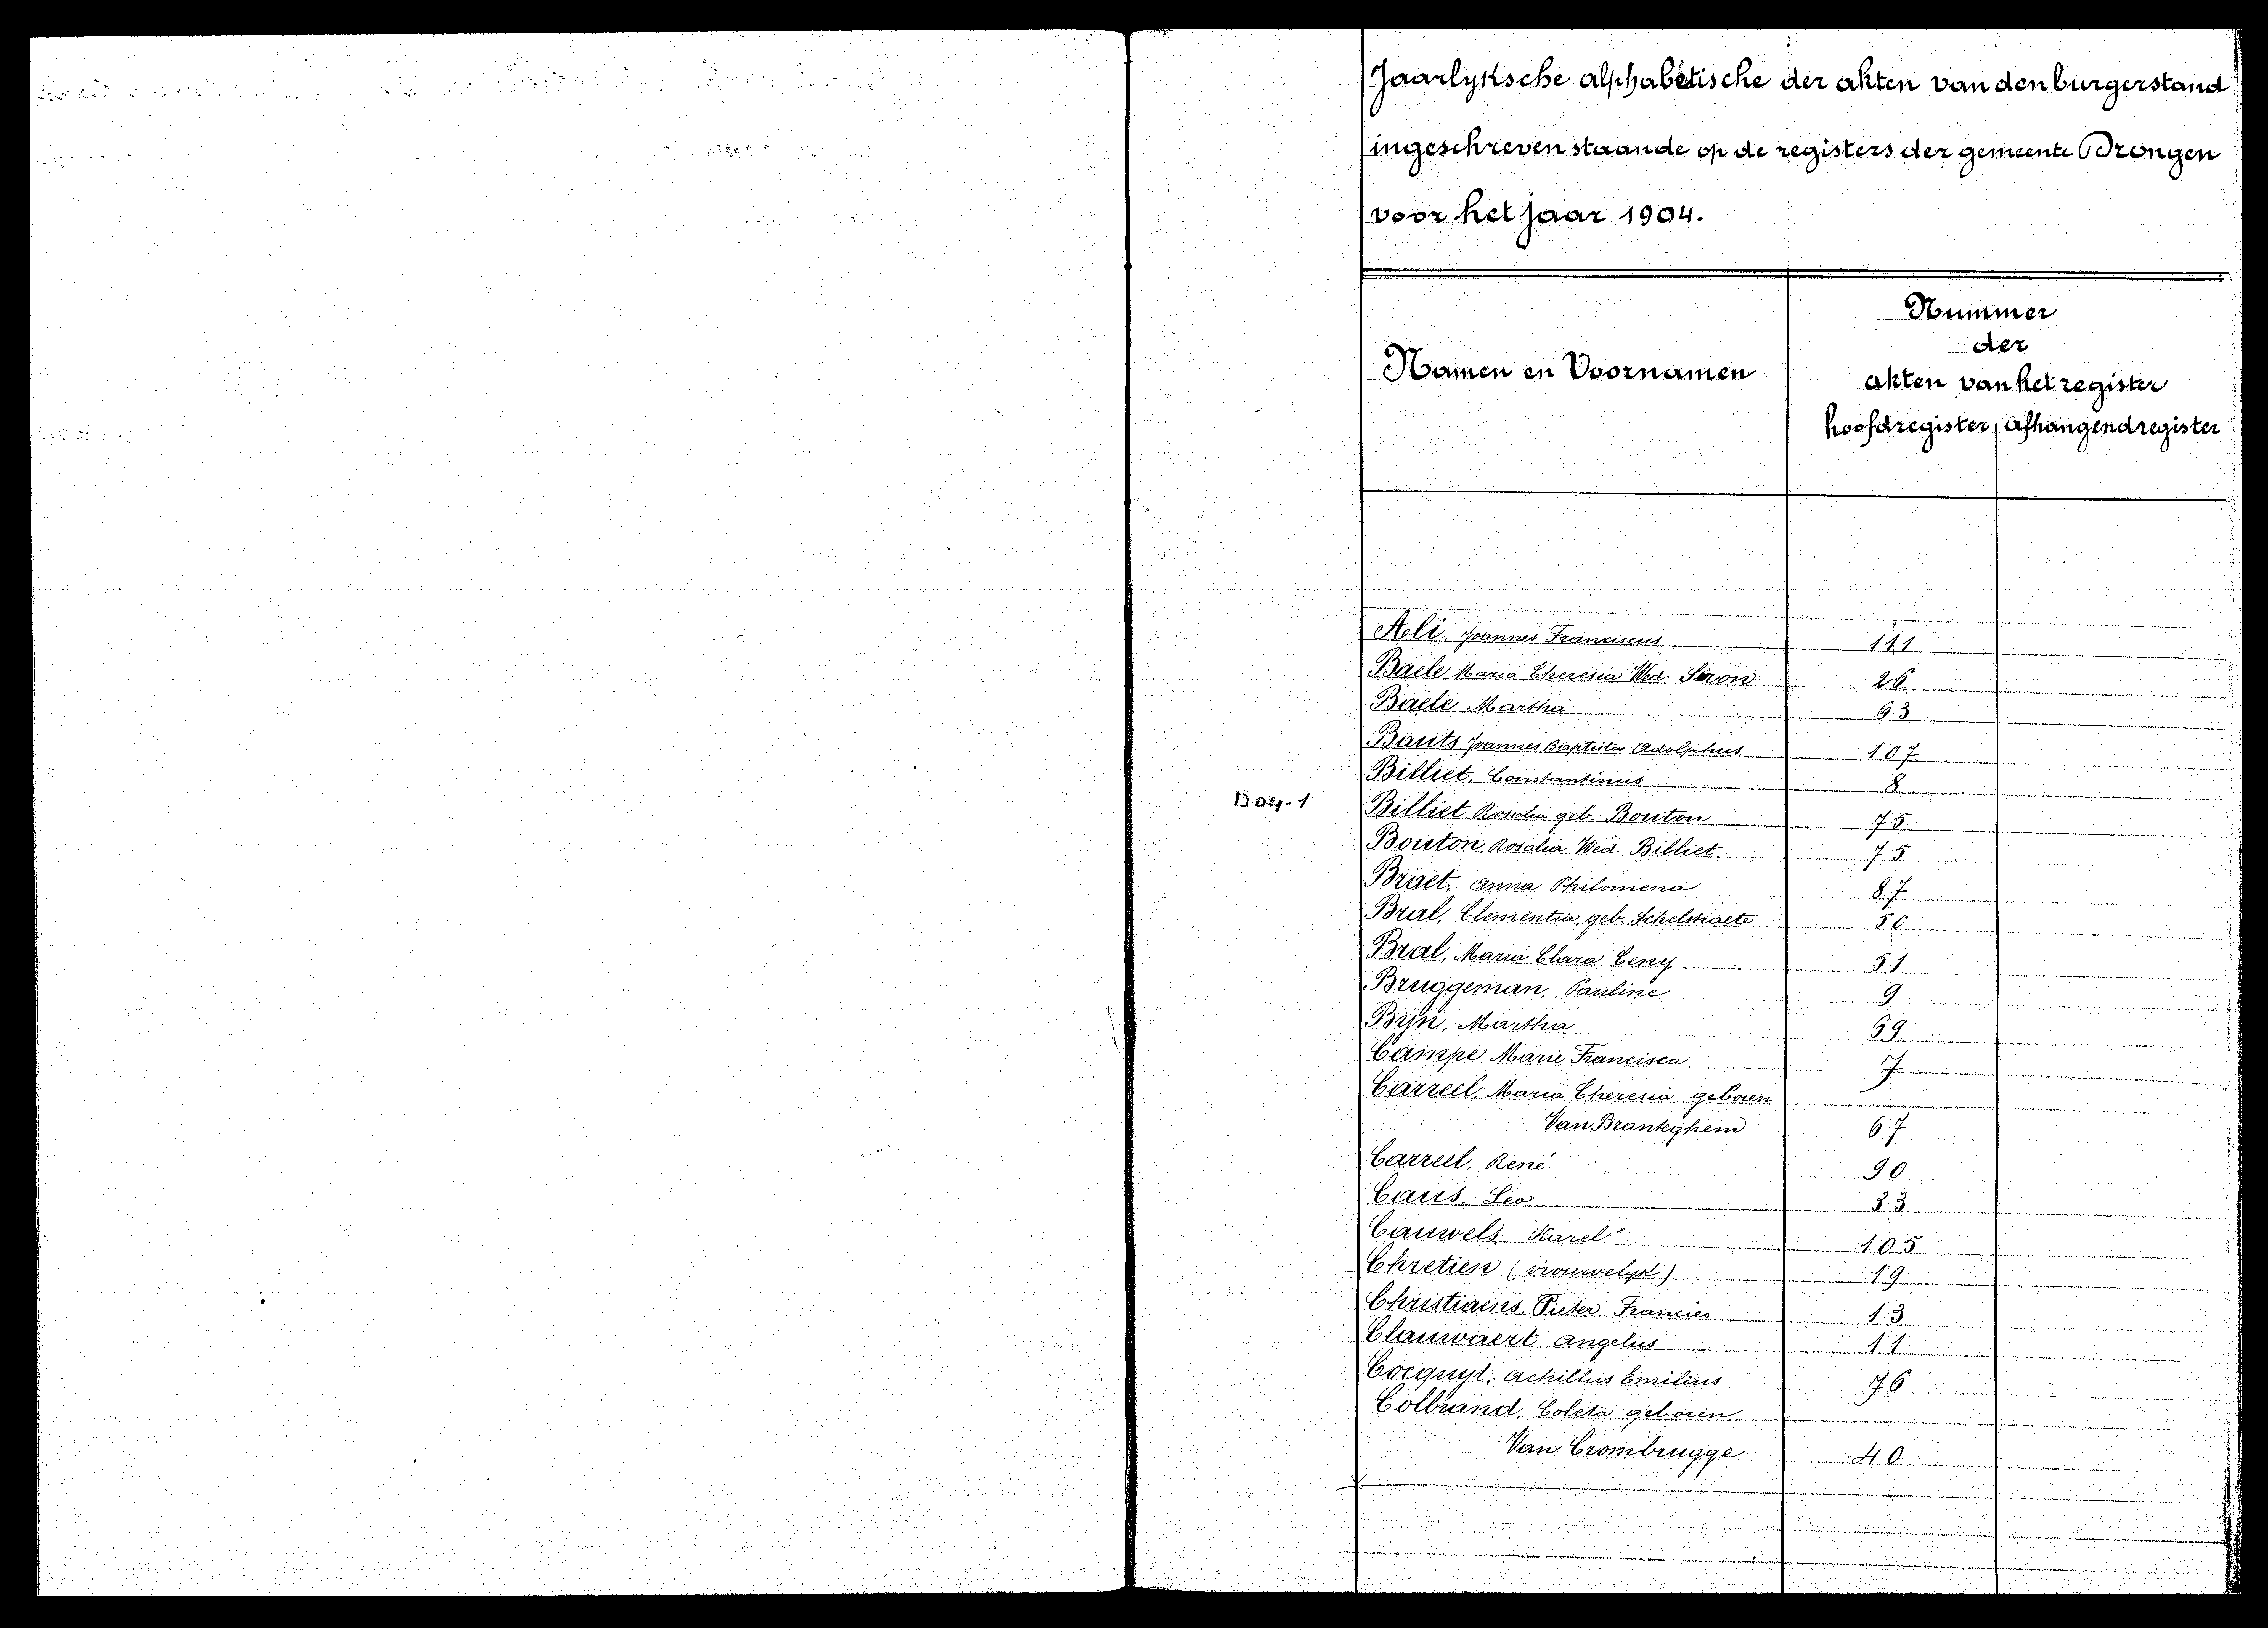 Jaarlyksche alphabetische der akten van den burgerstand
ingeschreven staande op de registers der gemeente Drongen
voor het jaar 1904.
Namen en Voornamen
Nummer
der
akten van het register
hoofdregister afhangendregister
Ali, Joannes Franciscus 111
Baele Maria Theresia Wed. Siron 26
Baele Martha 63
Bauts Joannes Baptista Adolphus 107
Billiet, Constantinus 8
D04-1
Billiet Rosalia geb. Bouton 75
Bouton, Rosalia Wed. Billiet 75
Braet, Anna Philomena 87
Bral, Clementia, geb. Schelstraete 50
Bral, Maria Clara Ceny 51
Bruggeman, Pauline 9
Byn, Martha 59
Campe Marie Francisca 7
Carreel, Maria Theresia geboren
Van Branteghem 67
Carreel, René 90
Caus, Leo 33
Cauwels Karel 105
Chretien (vrouwelyk) 19
Christiaens, Pieter Francies 13
Clauwaert Angelus 11
Cocquyt, Achillus Emilius 76
Colbrand, Coleta geboren
Van Crombrugge 40